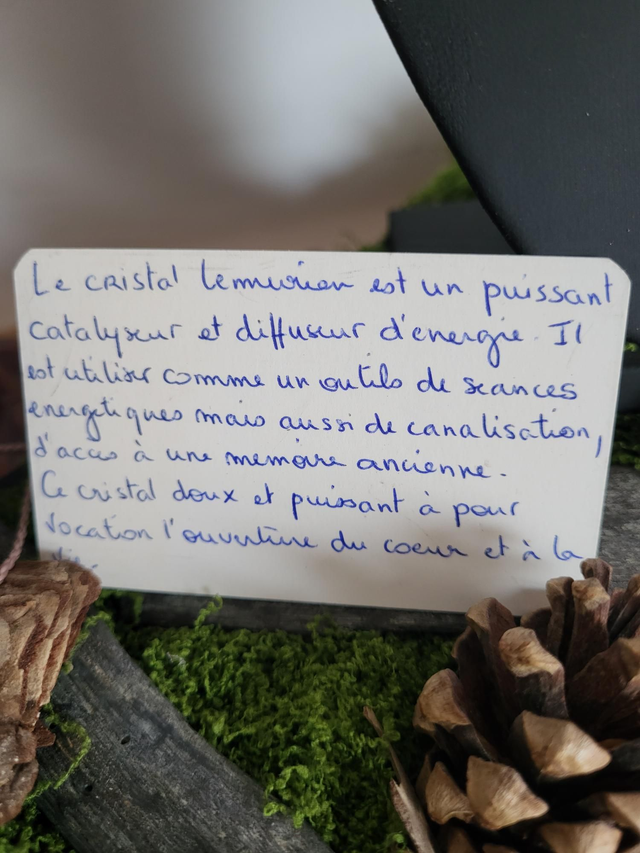 Le cristal lemurien est un puissant
catalyseur et diffuseur d'energie. Il
est utiliser comme un outils de seances
energetiques mais aussi de canalisation,
d'accès à une memoire ancienne.
Ce cristal doux et puissant à pour
vocation l'ouverture du coeur et à la